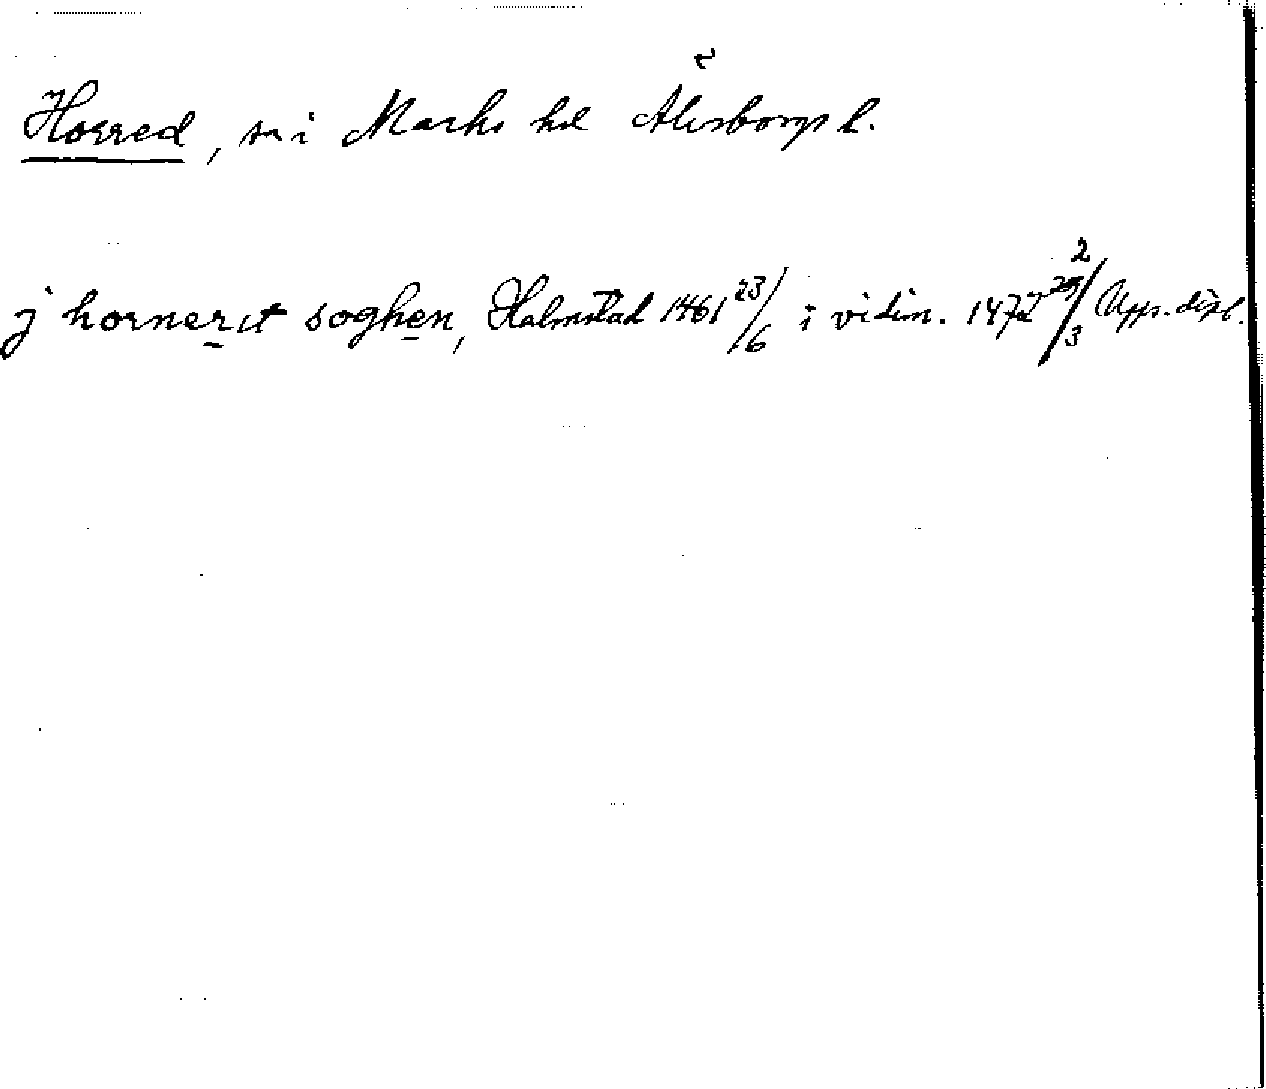 Horred, sn i Marks hd Älvsborgs l.
j hornerit soghen, Halmstad 1461 23/6 i vidim. 1472 29/3 2 Upps. dipl.